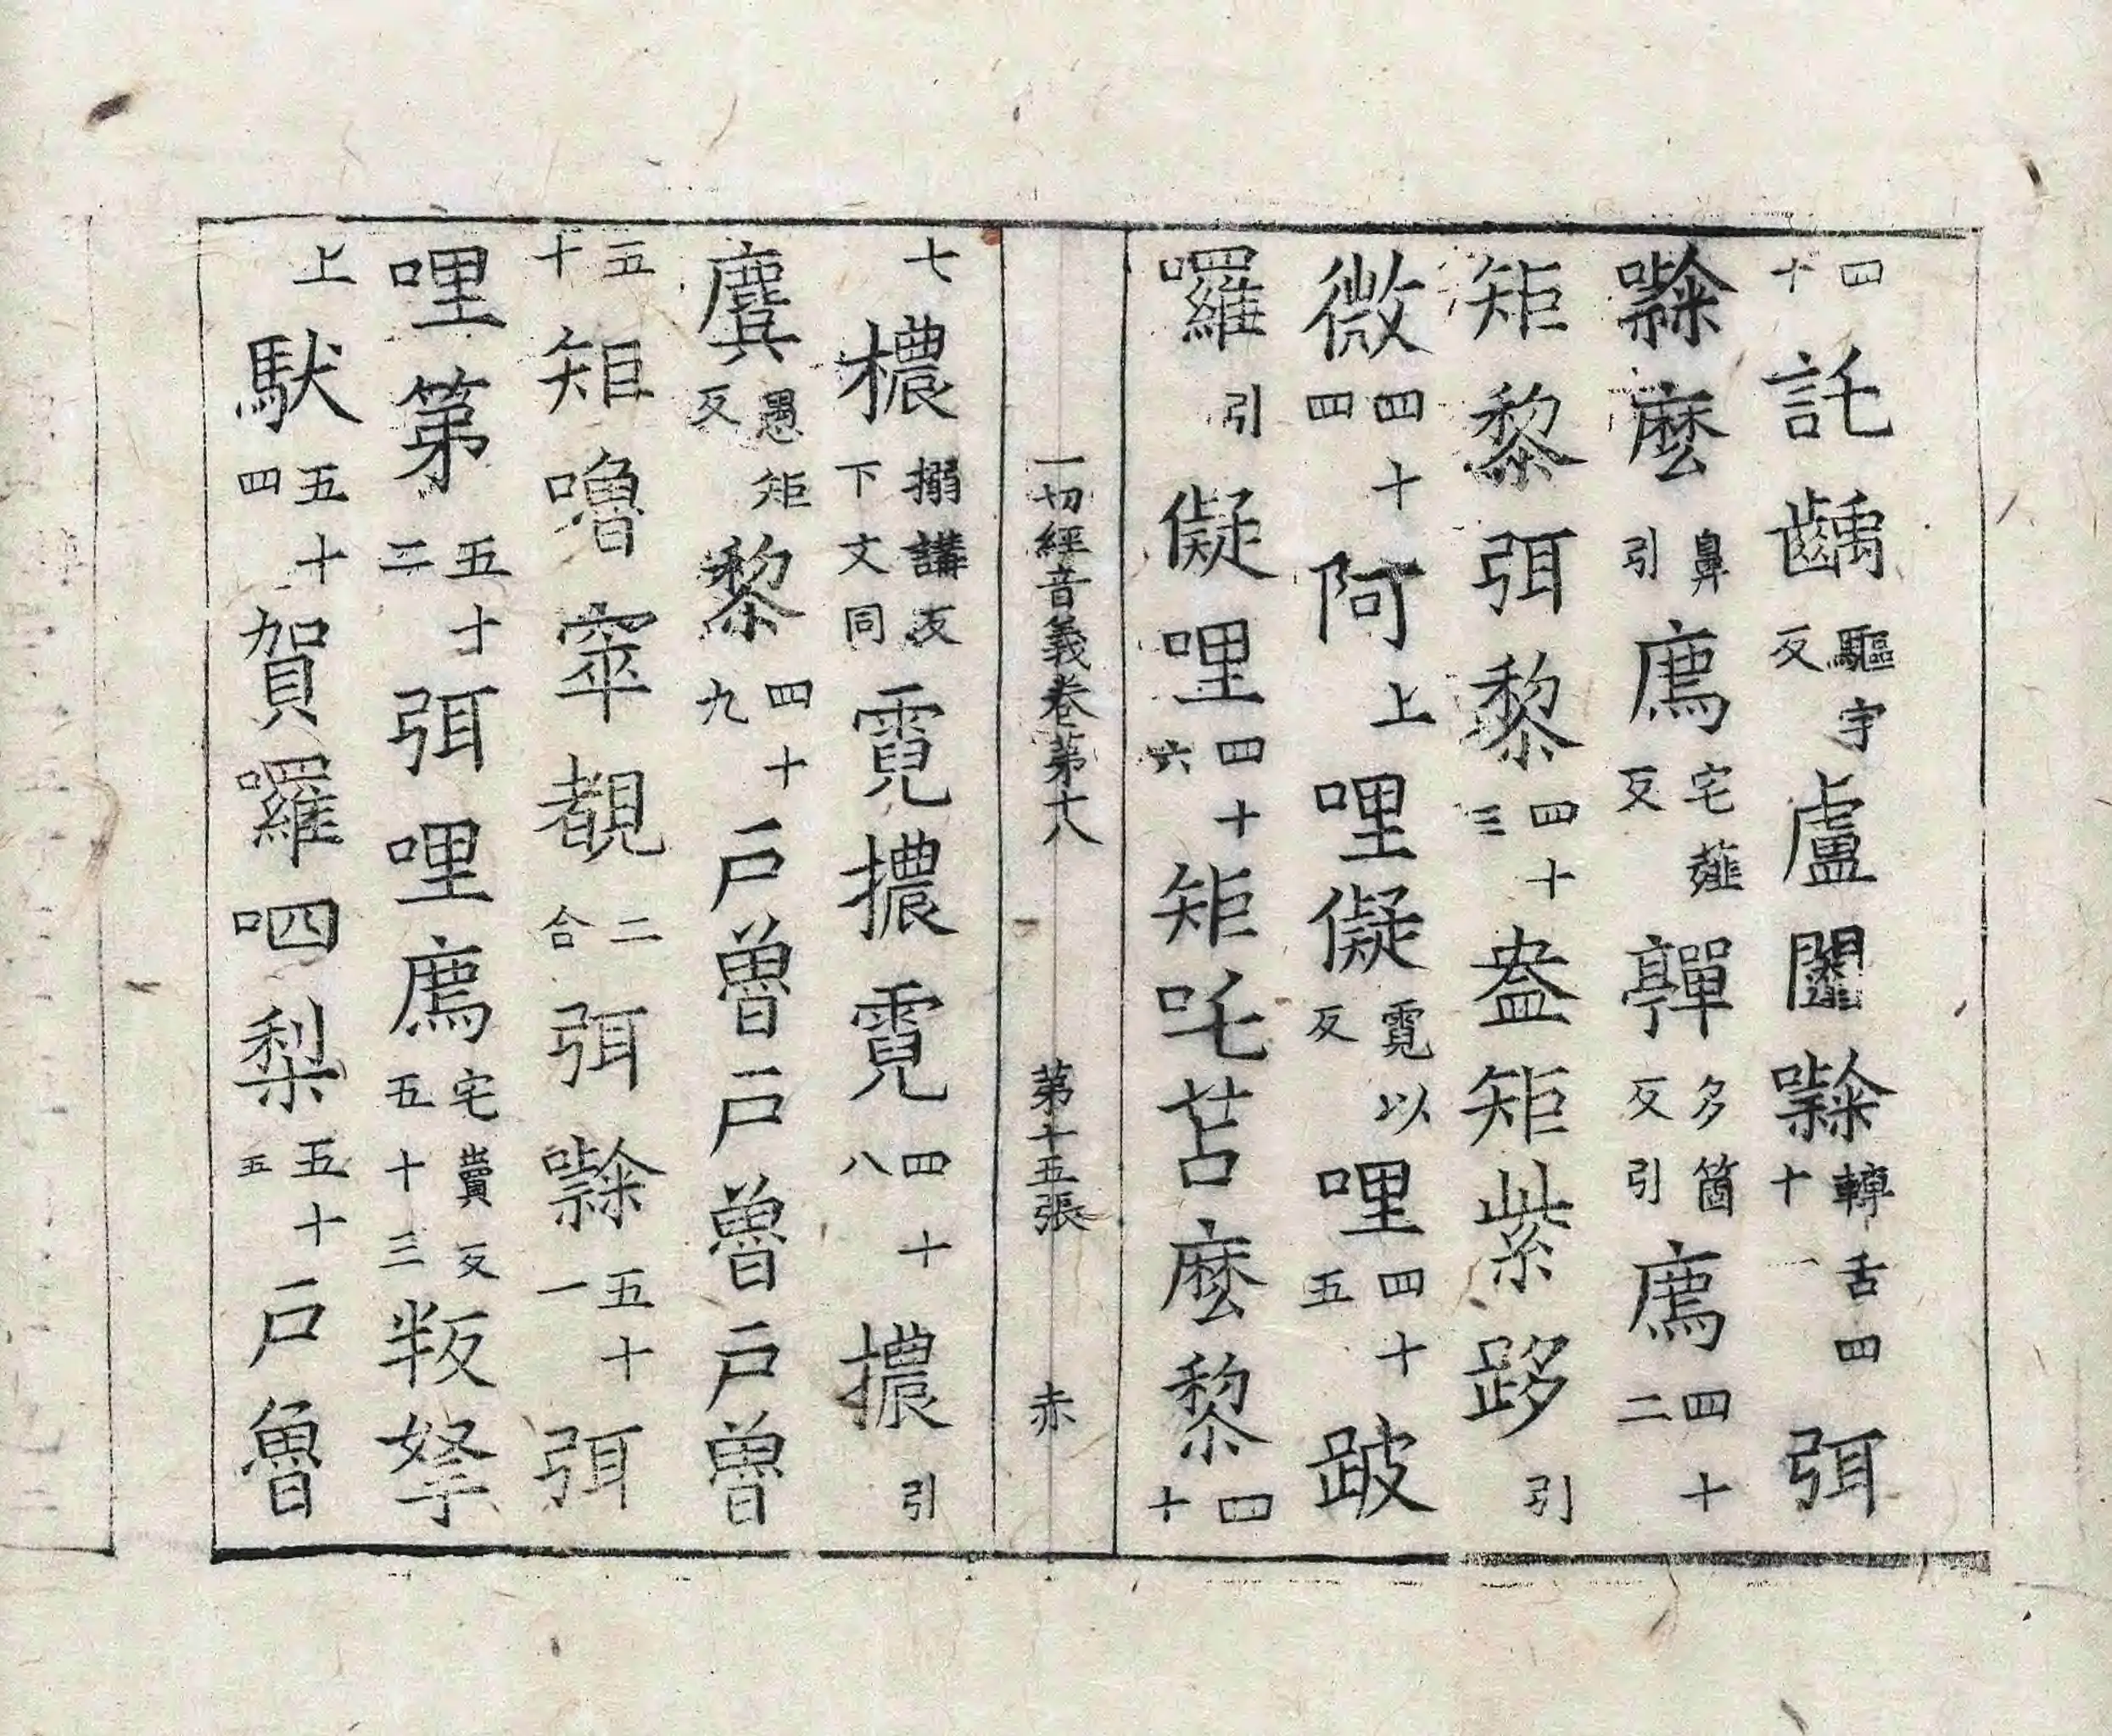 四十託齲驅宇反盧闔㘑轉舌四十一弭
㘑麼鼻引廌宅薤反嚲多箇反引廌四十二
矩黎弭黎四十三盎矩紫跢引
微四十四阿上哩儗霓以反哩四十五跛
囉引儗哩四十六矩吒苫麼黎四十
一切經音義卷第十八 第十五張 赤
七檂搦講反下文同霓擃霓四十八擃引
麌愚矩反黎四十九戶魯戶魯戶魯
五十矩嚕窣覩二合弭㘑五十一弭
哩第五十二弭哩廌宅賣反五十三叛拏
上䭾五十四賀囉呬梨五十五戶魯